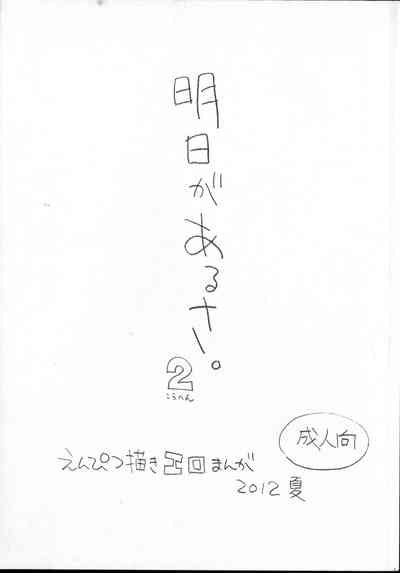 明日があるさ。
2
こうへん
成人向
えんぴつ描きエロまんが
2012夏